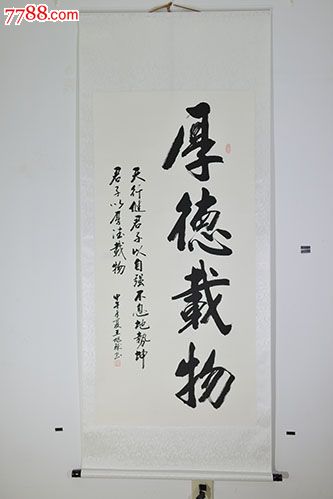 7788.com
厚德載物
天行健君子以自强不息地勢坤
君子以厚德載物
甲午夏王